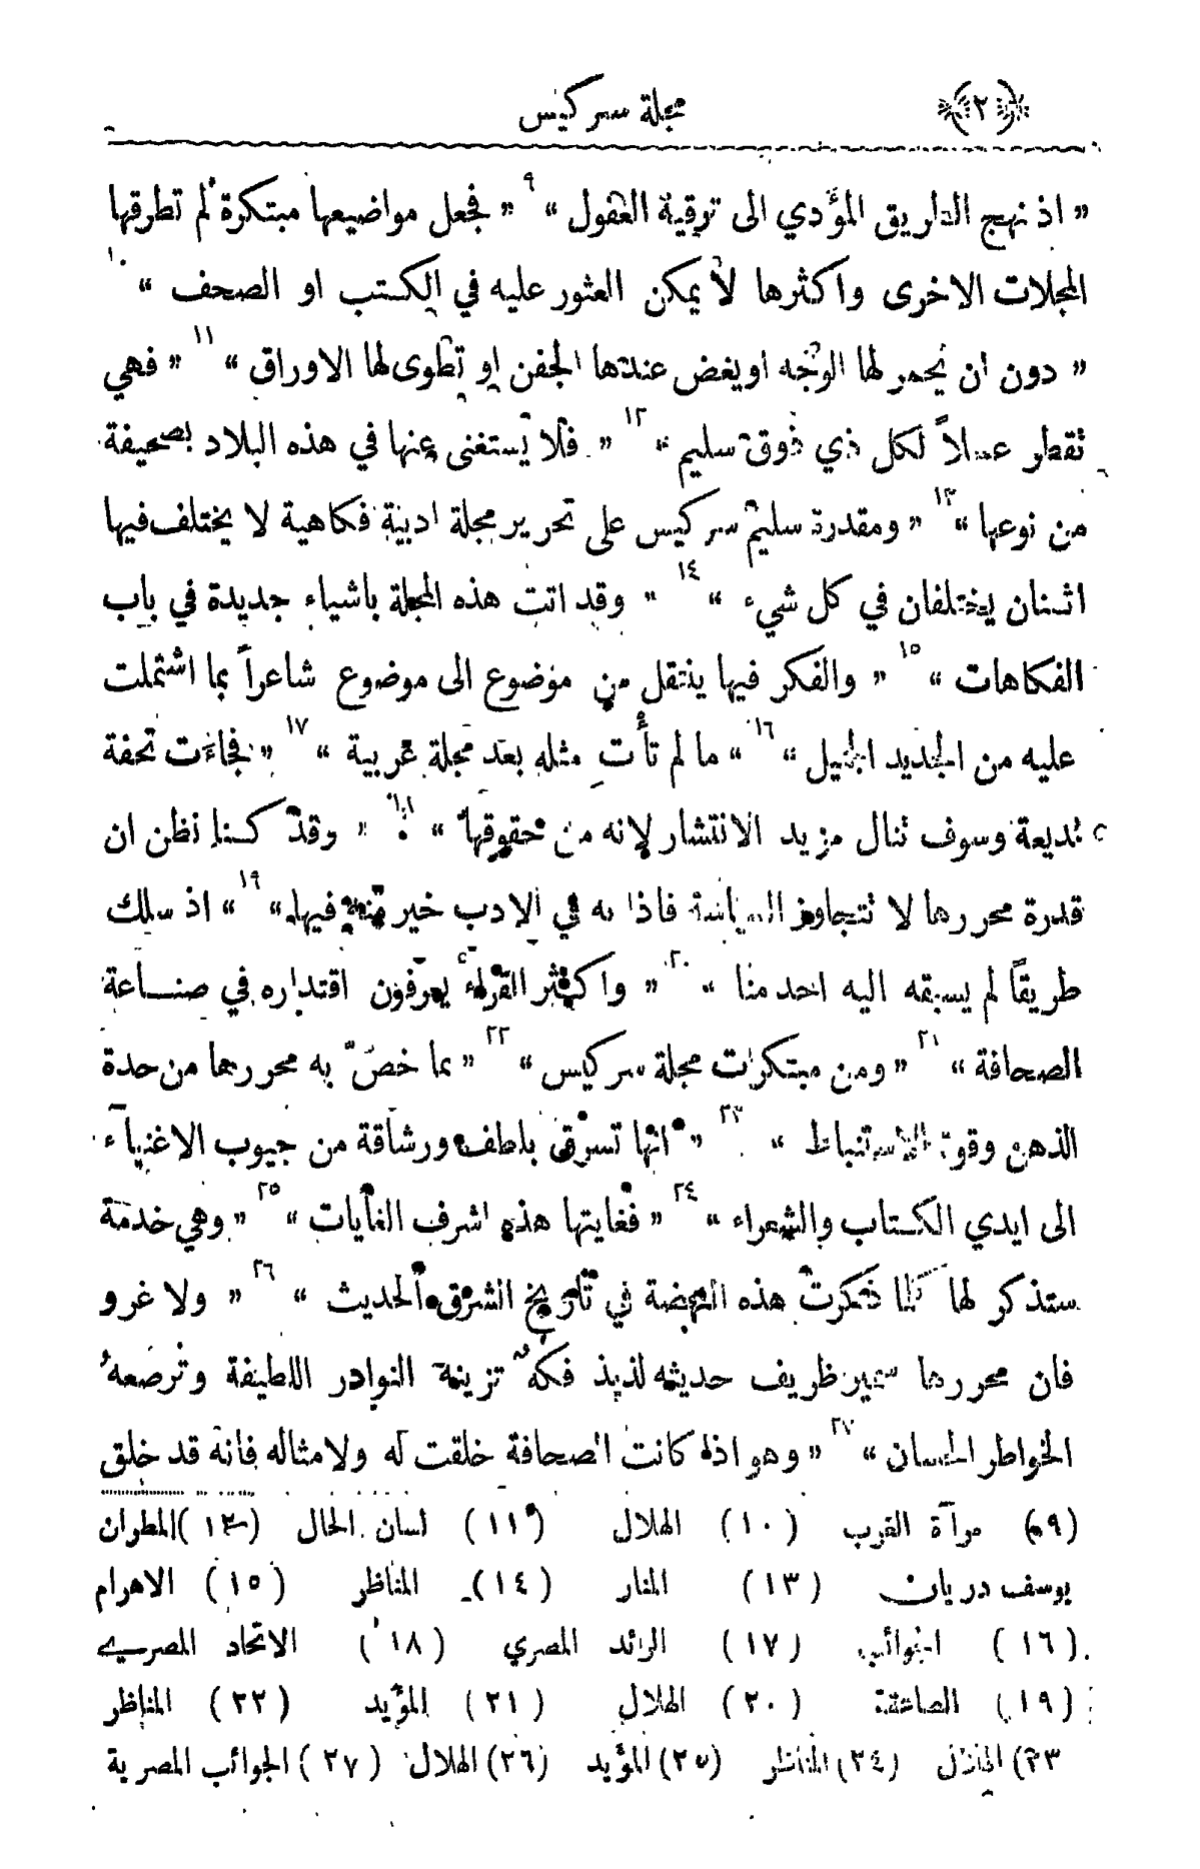 ﴿٢﴾ مجلة سركيس
« اذ نهج الطريق المؤدي الى ترقية العقول » ٩ « فجعل مواضيعها مبتكرة لم تطرقها
المجلات الاخرى واكثرها لا يمكن العثور عليه في الكتب او الصحف » ١٠
« دون ان يحمر لها الوجه او يغض عندها الجفن او تطوى لها الاوراق » ١١ « فهي
تقطر عسلاً لكل ذي ذوق سليم » ١٢ « فلا يستغنى عنها في هذه البلاد بصحيفة
من نوعها » ١٣ « ومقدرة سليم سركيس على تحرير مجلة ادبية فكاهية لا يختلف فيها
اثنان يختلفان في كل شيء » ١٤ « وقد اتت هذه المجلة باشياء جديدة في باب
الفكاهات » ١٥ « والفكر فيها ينتقل من موضوع الى موضوع شاعراً بما اشتملت
عليه من الجديد الجميل » ١٦ « ما لم تأتِ مثله بعد مجلة عربية » ١٧ « فجاءت تحفة
بديعة وسوف تنال مزيد الانتشار لانه من حقوقها » ١٨ « وقد كنا نظن ان
قدرة محررها لا تتجاوز السياسة فاذا به في الادب خير منه فيها » ١٩ « اذ سلك
طريقاً لم يسبقه اليه احد منا » ٢٠ « واكثر القراء يعرفون اقتداره في صناعة
الصحافة » ٢١ « ومن مبتكرات مجلة سركيس » ٢٢ « بما خصّ به محررها من حدة
الذهن وقوة الاستنباط » ٢٣ « انها تسرق بلطف ورشاقة من جيوب الاغنياء
الى ايدي الكتاب والشعراء » ٢٤ « فغايتها هذه اشرف الغايات » ٢٥ « وهي خدمة
ستذكر لها كلما ذكرت هذه النهضة في تاريخ الشرق الحديث » ٢٦ « ولا غرو
فان محررها سمير ظريف حديثه لذيذ فكهٌ تزينه النوادر اللطيفة وترصعهُ
الخواطر الحسان » ٢٧ « وهو اذا كانت الصحافة خلقت له ولامثاله فانه قد خلق
(٩) مرآة الغرب (١٠) الهلال (١١) لسان الحال (١٢) المطران
يوسف دريان (١٣) المنار (١٤) المناظر (١٥) الاهرام
(١٦) الجوائب (١٧) الرائد المصري (١٨) الاتحاد المصري
(١٩) الصاعقة (٢٠) الهلال (٢١) المؤيد (٢٢) المناظر
٢٣) الهلال (٢٤) المناظر (٢٥) المؤيد (٢٦) الهلال (٢٧) الجوائب المصرية